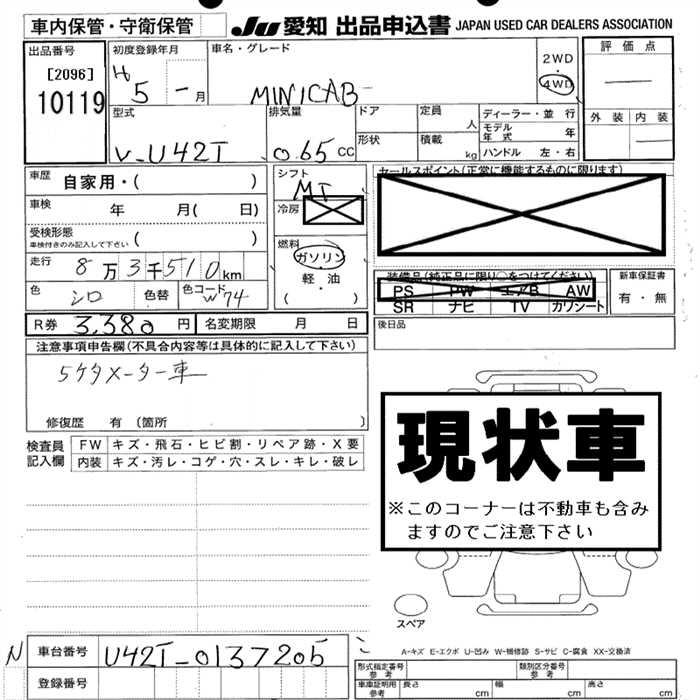 車内保管・守衛保管
JU 愛知 出品申込書 JAPAN USED CAR DEALERS ASSOCIATION
出品番号
[2096]
10119
初度登録年月
H 5 - 月
車名・グレード
MINICAB
2WD
・
4WD
評価点
外装 内装
型式
V-U42T
排気量
0.65 CC
ドア
定員
人
形状
積載
kg
ディーラー・並行
モデル年式 年
ハンドル 左・右
車歴 自家用・( )
車検 年 月( 日)
受検形態
車検付きのみ記入して下さい ( )
走行 8万3千510km
色 シロ 色替 色コード W74
シフト
MT
冷房
燃料
ガソリン
軽油
( )
セールスポイント(正常に機能するものに限ります)
装備品(純正品に限り○をつけてください)
PS PW エアB AW
SR ナビ TV カワシート
新車保証書
有・無
R券 3,380 円 名変期限 月 日
後日品
注意事項申告欄(不具合内容等は具体的に記入して下さい)
5ケタメーター車
修復歴 有 (箇所 )
検査員記入欄
FW キズ・飛石・ヒビ割・リペア跡・X要
内装 キズ・汚レ・コゲ・穴・スレ・キレ・破レ
現状車
※このコーナーは不動車も含み
ますのでご注意下さい
スペア
N
車台番号 U42T-0137205
登録番号
A-キズ E-エクボ U-凹み W-補修跡 S-サビ C-腐食 XX-交換済
形式指定番号 参考
類別区分番号 参考
車庫証明用 参考 長さ cm 幅 cm 高さ cm